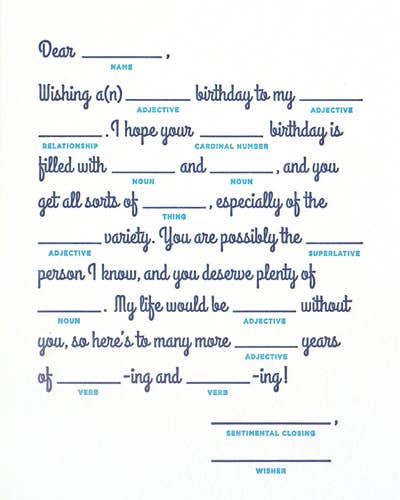 Dear ________ ,
NAME
Wishing a(n) ________ birthday to my ________
ADJECTIVE ADJECTIVE
________ . I hope your ________ birthday is
RELATIONSHIP CARDINAL NUMBER
filled with ________ and ________ , and you
NOUN NOUN
get all sorts of ________ , especially of the
THING
________ variety. You are possibly the ________
ADJECTIVE SUPERLATIVE
person I know, and you deserve plenty of
________ . My life would be ________ without
NOUN ADJECTIVE
you, so here's to many more ________ years
ADJECTIVE
of ________ -ing and ________ -ing!
VERB VERB
________________ ,
SENTIMENTAL CLOSING
________________
WISHER